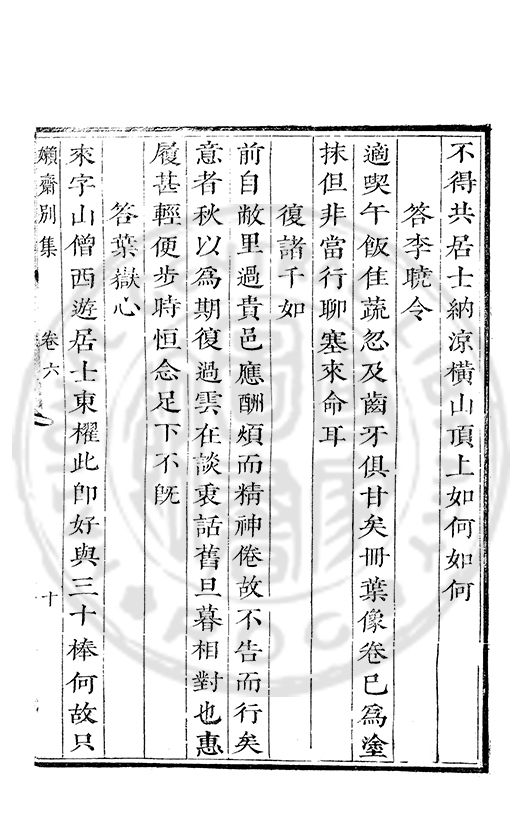 不得共居士納涼橫山頂上如何如何
答李曉令
適喫午飯佳蔬忽及齒牙俱甘矣冊葉像卷已爲塗
抹但非當行聊塞來命耳
復諸千如
前自敝里過貴邑應酬煩而精神倦故不告而行矣
意者秋以爲期復過雲在談衷話舊旦暮相對也惠
履甚輕便步時恒念足下不旣
答葉嶽心
來字山僧西遊居士東櫂此卽好與三十棒何故只
嬾齋別集 卷六 十